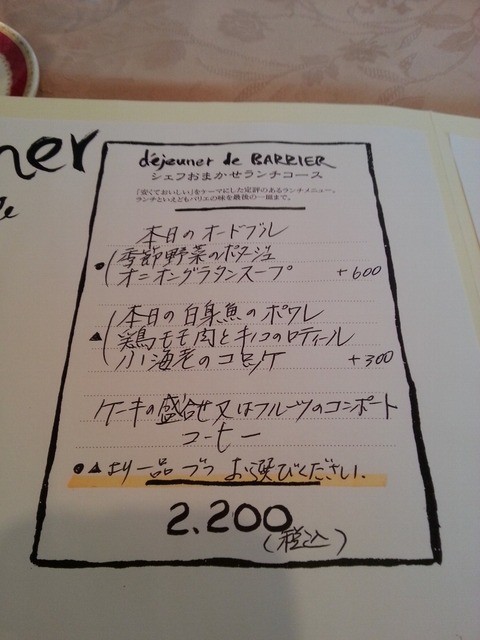 ner
déjeuner de BARRIER
シェフおまかせランチコース
「安くておいしい」をテーマにした定評のあるランチメニュー。
ランチといえどもバリエの味を最後の一皿まで。
本日のオードブル
● 季節野菜のポタージュ
オニオングラタンスープ +600
▲ 本日の白身魚のポワレ
鶏モモ肉とキノコのロティール
小海老のコロッケ +300
ケーキの盛合せ又はフルーツのコンポート
コーヒー
●▲より一品づつお選びください.
2.200
(税込)